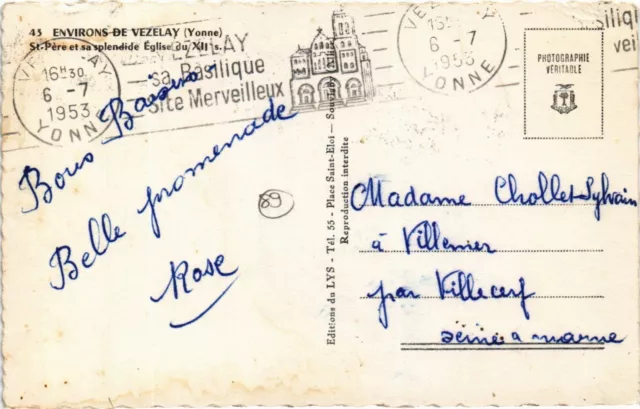 45 ENVIRONS DE VEZELAY (Yonne)
St-Père et sa splendide Église du XII s.
VEZELAY
16H30
6 -7
1953
YONNE
VEZELAY
sa Basilique
Site Merveilleux
VEZELAY
6 -7
1953
YONNE
silique
veil
PHOTOGRAPHIE
VÉRITABLE
Bons Baisers.
Belle promenade
Rose
89
Editions du LYS - Tél. 55 - Place Saint-Eloi -
Reproduction interdite
Madame Chollet-Sylvain
à Villemer
par Villecerf
Seine a marne